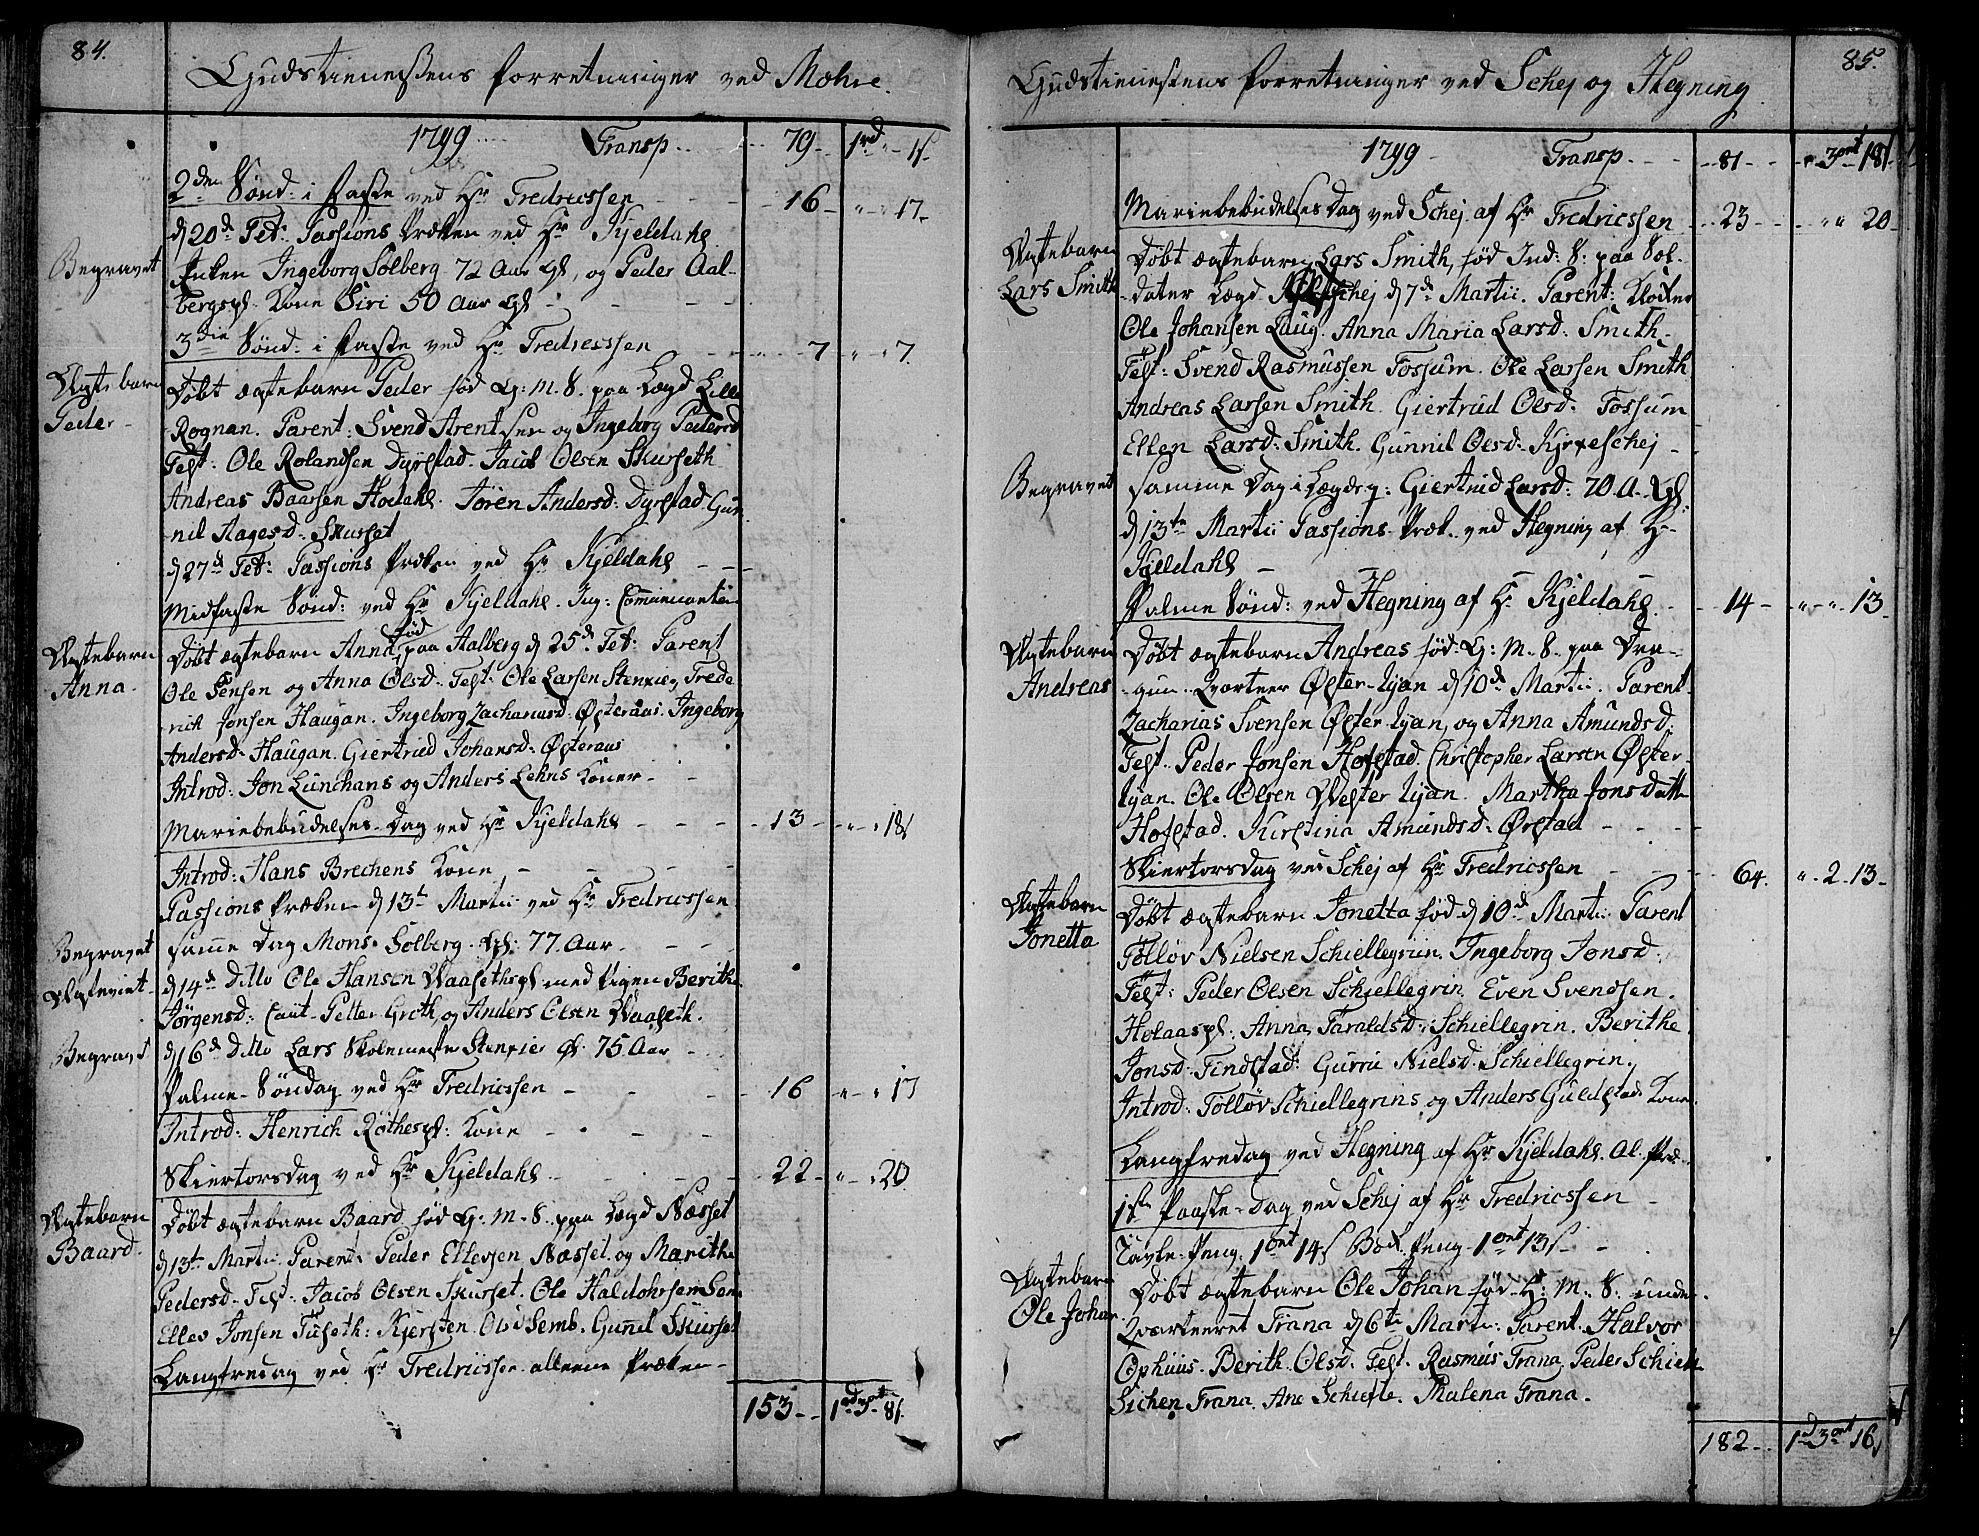 84.
Gudstienestens Forretninger ved Mæhre.
1799 Transp. 79 1rd 1s
2den Sønd: i Faste ved Hr Fredricssen 16 17
d 20d Feb: Passions Præken ved Hr Kjeldahl
Begravet
Enken Ingeborg Solberg 72 Aar gl, og Peder Aal-
bergspl. Kone Siri 50 Aar gl
3die Sønd: i Faste ved Hr Fredricssen 7 7
Ægtebarn
Peder
Døbt ægtebarn Peder fød G: M. S. paa Lægd Lille
Rognan. Parent: Svend Arentsen og Ingeborg Pedersd
Test: Ole Rolandsen Dyrstad. Jacob Olsen Skurseth
Andreas Baarsen Hodahl. Jören Andersd: Dyrstad. Gun
nil Aagesd: Skurset
d 27d Feb: Passions Præken ved Hr Kjeldahl
Midfaste Sønd: ved Hr Kjeldahl. Ing: Communicanter
Ægtebarn
Anna
Døbt ægtebarn Anna fød paa Aalberg d 25d Feb: Parent
Ole Jensen og Anna Olsd. Test: Ole Larsen Stenxier, Frede
rich Jonsen Haugan. Ingeborg Zachariasd: Østeraas. Ingeborg
Andersd: Haugan. Giertrud Johansd: Østeraas
Introd: Jon Lunchans og Anders Lehns Koner
Mariebebudelses-Dag ved Hr Kjeldahl 13 18s
Introd: Hans Brechens Kone
Passions Præken d 13t Martii ved Hr Fredricssen
Begravet
samme Dag Mons. Solberg. gl: 77 Aar
Ægteviet
d 14d Ditto Ole Hansen Waasethspl med Pigen Berithe
Jörgensd: Caut. Petter Groth, og Anders Olsen Waaseth.
Begravet
d 16d Ditto Lars Skolemester Stenxier gl. 75 Aar
Palme-Søndag ved Hr Fredricssen 16 17
Introd: Henrich Røthespl: Kone
Skiertorsdag ved Hr Kjeldahl 22 20
Ægtebarn
Baard
Døbt ægtebarn Baard fød G: M. S. paa Lægd Næsset
d 13t Martii. Parent: Peder Ellevsen Næsset og Marithe
Pedersd. Test. Jacob Olsen Skurset. Ole Haldohrsen Sem
Ellev Jonsen Tuseth: Kjersten Olsd Semb. Gunnil Skurset
Langfredag ved Hr Fredricssen allene Præken
153 1rd 3ort 8s
85.
Gudstienestens Forretninger ved Schej og Hegning
1799 Transp. 81 3ort 18s
Mariebebudelses Dag ved Schej af Hr Fredricssen 23 20
Ægtebarn
Lars Smith
Døbt ægtebarn Lars Smith, fød Ind: S. paa Sol-
dater Lægd Schej d 7d Martii. Parent: Klocker
Ole Johansen Laug. Anna Maria Larsd: Smith.
Test: Svend Rasmussen Fossum. Ole Larsen Smith
Andreas Larsen Smith. Giertrud Olsd. Fossum
Ellen Larsd: Smith. Gunnil Olsd: Kyrxeschej
Begravet
samme Dag i Giertrud Larsd: 70 A. gl:
d 13te Martii Passions Præk. ved Hegning af Hr
Kjeldahl
Palme Sønd: ved Hegning af Hr Kjeldahl 14 13
Ægtebarn
Andreas
Døbt ægtebarn Andreas fød: G: M. S. paa Dra-
gun. Qvarteer Øster-Lyan d 10d Martii. Parent
Zacharias Svensen Øster Lyan, og Anna Amundsd.
Test. Peder Jonsen Hofstad. Christopher Larsen Øster-
Lyan. Ole Olsen Wester Lyan. Martha Jonsdatter
Hofstad. Kirstina Amundsd: Ørstad
Skiertorsdag ved Schej af Hr Fredricssen 64. 2 13
Ægtebarn
Jonetta
Døbt ægtebarn Jonetta fød d 10d Martii Parent
Tølløv Nielsen Schiellegrin. Ingeborg Jonsd.
Test: Peder Olsen Schiellegrin Even Svendsen.
Holaaspl. Anna Taraldsd: Schiellegrin. Berithe
Jonsd: Findstad: Gurru Nielsd. Schiellegrin.
Introd: Tølløv Schiellegrins, og Anders Guldstads Koner
Langfredag ved Hegning af Hr Kjeldahl. al. Præ.
1ste Paaske-Dag ved Schej af Hr Fredricssen
Tavle-Peng. 1ort 14s Box. Peng. 1ort 13s
Ægtebarn
Ole Johan
Døbt ægtebarn Ole Johan fød H: M. S. under
Qvarteeret Trana d 6te Martii. Parent. Halvor
Ophuus. Berith Olsd. Test. Rasmus Trana, Peder Schiefte
Sichen Trana. Ane Schiefte. Malena Trana.
182 1rd 3ort 16s